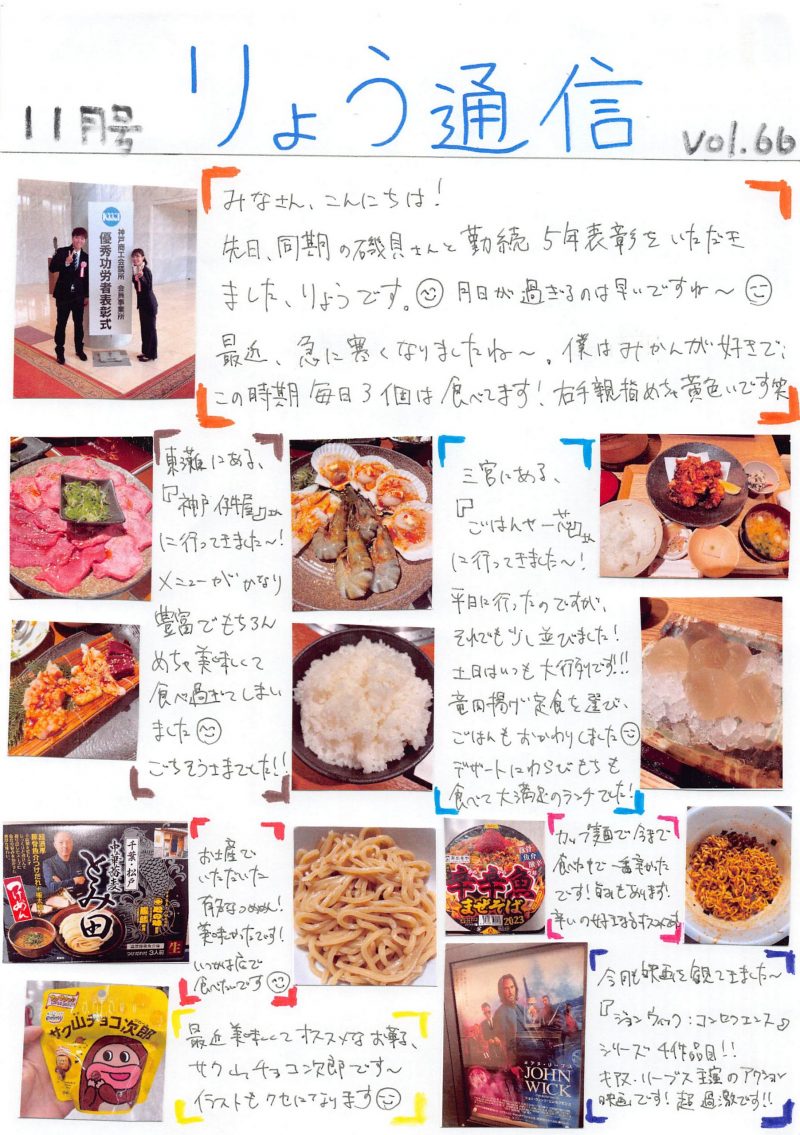 11月号
りょう通信
vol.66
みなさん、こんにちは!
先日、同期の磯貝さんと勤続5年表彰をいただき
ました、りょうです。月日が過ぎるのは早いですね〜
最近、急に寒くなりましたね〜。僕はみかんが好きで、
この時期毎日3個は食べてます!右手親指めちゃ黄色いです笑
神戸商工会議所 会員事業所
優秀功労者表彰式
東灘にある、
『神戸牛屋』さん
に行ってきました〜!
メニューがかなり
豊富でもちろん
めちゃ美味しくて
食べ過ぎてしまい
ました
ごちそうさまでした!!
三宮にある、
『ごはんや一芯』さん
に行ってきました〜!
平日に行ったのですが、
それでも少し並びました!
土日はいつも大行列です!!!
竜田揚げ定食を選び、
ごはんもおかわりしました
デザートにわらびもちも
食べて大満足のランチでした!
千葉・松戸
中華蕎麦
とみ田
つけめん
生
3人前
お土産で
いただいた
有名なつめめん!
美味かったです!
いつかは店で
食べたいです
豚骨
魚介
辛辛魚
まぜそば
2023
カップ麺で今まで
食べた中で一番辛かった
です!旨みもあります!
辛いの好きな方オススメです
サク山チョコ次郎
最近美味しくてオススメなお菓子、
サク山チョコ次郎です〜
イラストもクセになります
キアヌ・リーブス
JOHN
WICK
今月も映画を観てきました〜
『ジョン・ウィック:コンセクエンス』
シリーズ4作品目!!
キアヌ・リーブス主演のアクション
映画です!超過激です!!